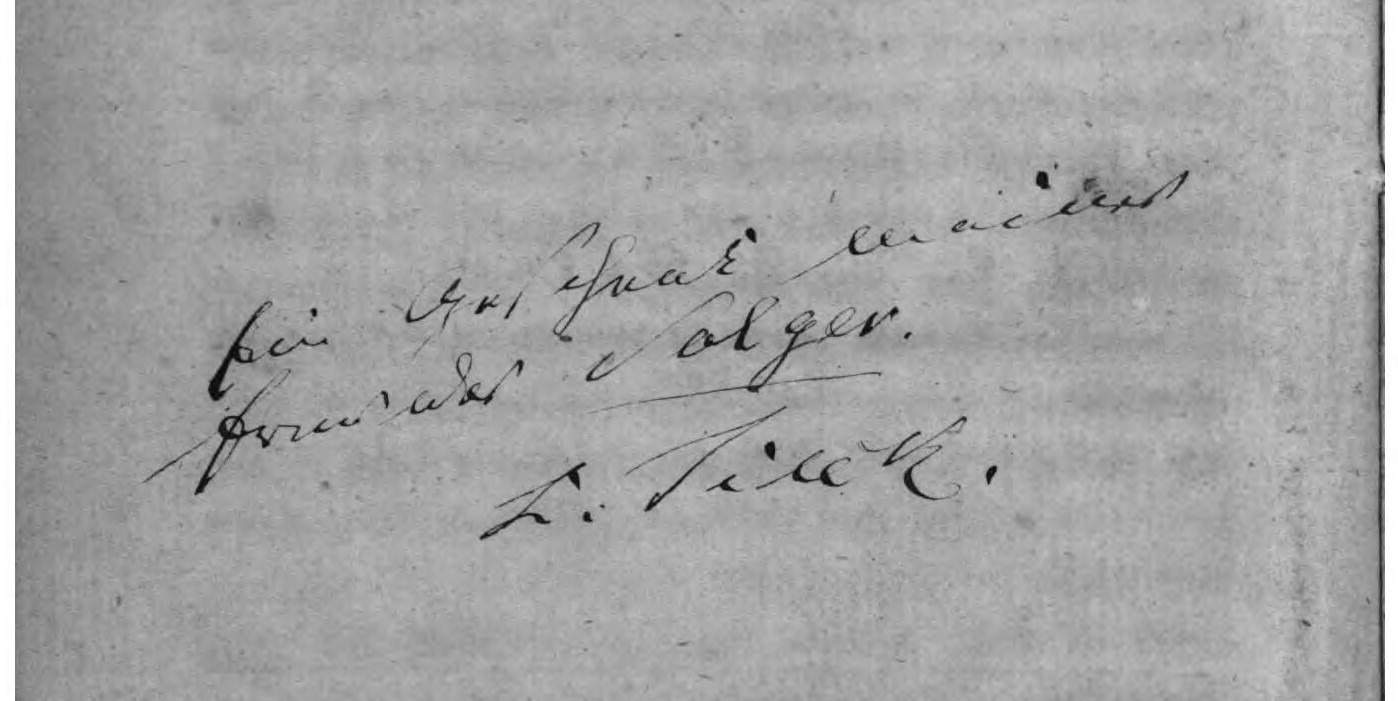 Ein Geschenk meines
Freundes Solger.
L. Tieck.